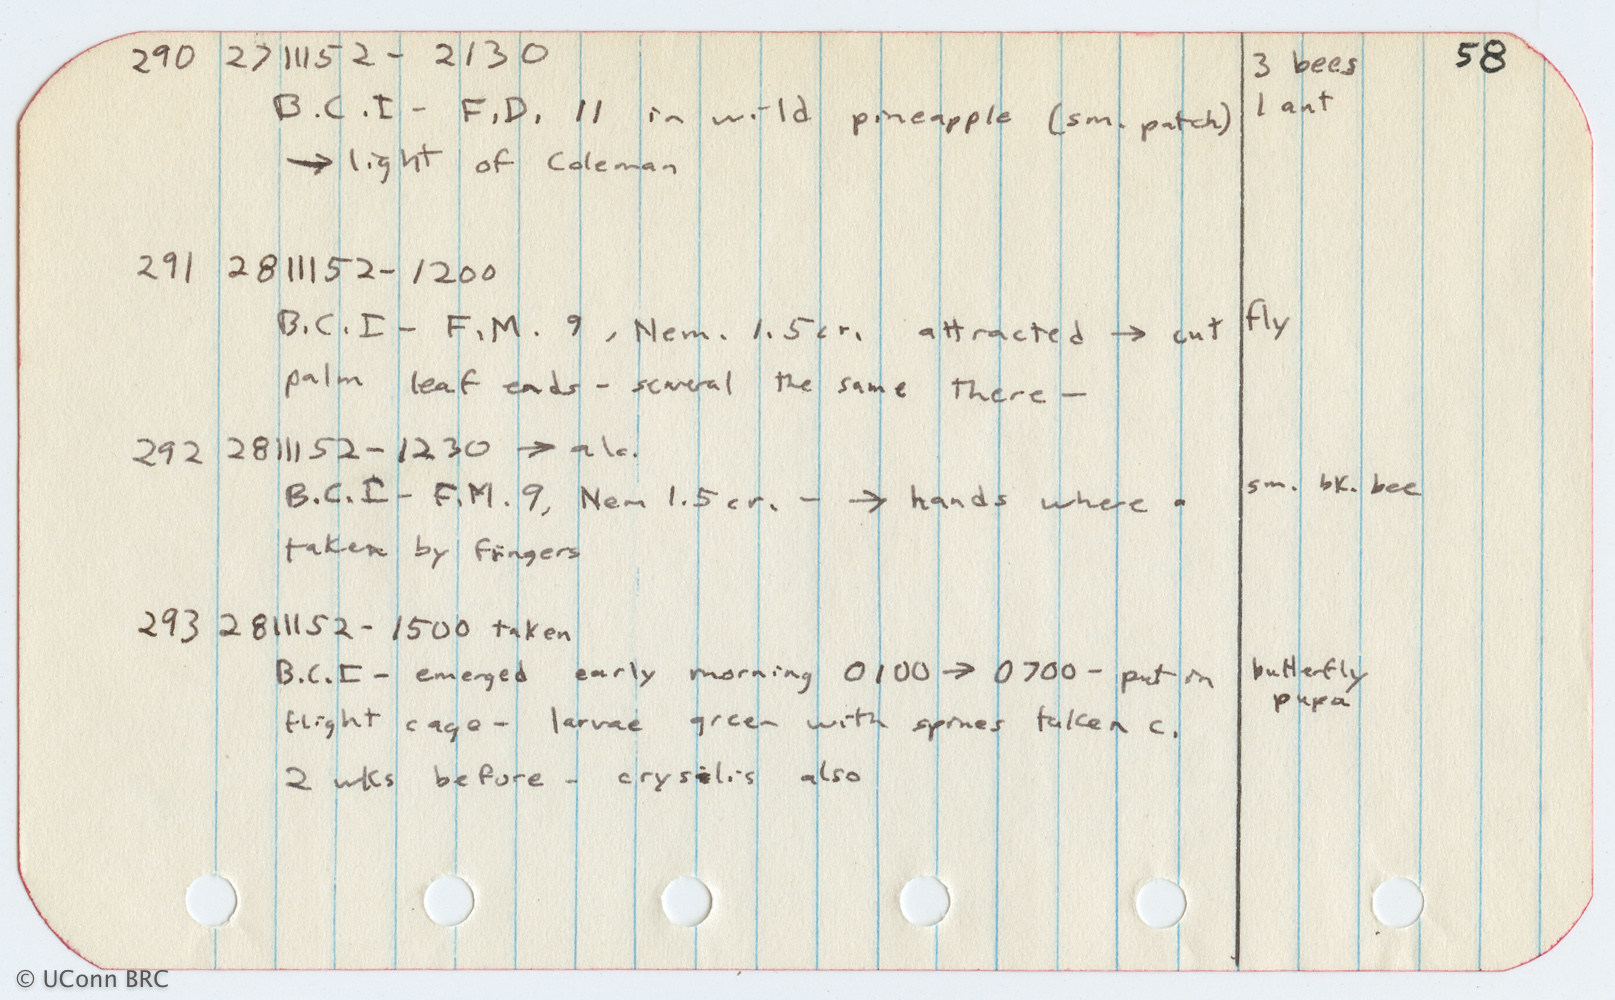 58
290 27III52- 2130
3 bees
B.C.I - F.D. 11 in wild pineapple (sm. patch)
1 ant
→ light of Coleman
291 28III52-1200
B.C.I - F.M. 9, Nem. 1.5 cr. attracted → cut
fly
palm leaf ends - several the same there -
292 28III52-1230 → alc.
B.C.I - F.M. 9, Nem 1.5 cr. - → hands where
sm. bk. bee
taken by fingers
293 28III52- 1500 taken
B.C.I - emerged early morning 0100 → 0700 - put in
butterfly
pupa
flight cage - larvae green with spines taken c.
2 wks before - crysilis also
© UConn BRC